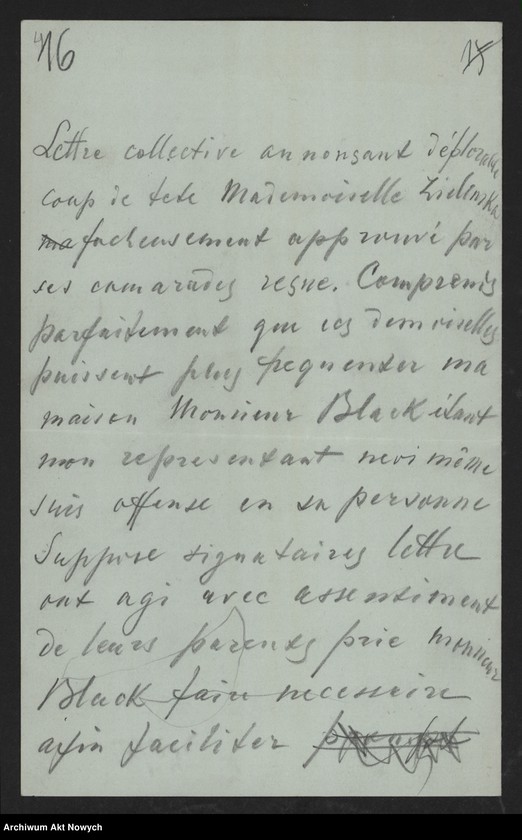 16
Lettre collective annonçant déplorable
coup de tete Mademoiselle Zielenska
facheusement approuvé par
ses camarades reçue. Comprends
parfaitement que ces demoiselles
puissent plus frequenter ma
maison Monsieur Black étant
mon representant moi même
suis offense en sa personne
Suppose signataires lettre
ont agi avec assentiment
de leurs parents prie monsieur
Black faire necessaire
afin faciliter
Archiwum Akt Nowych